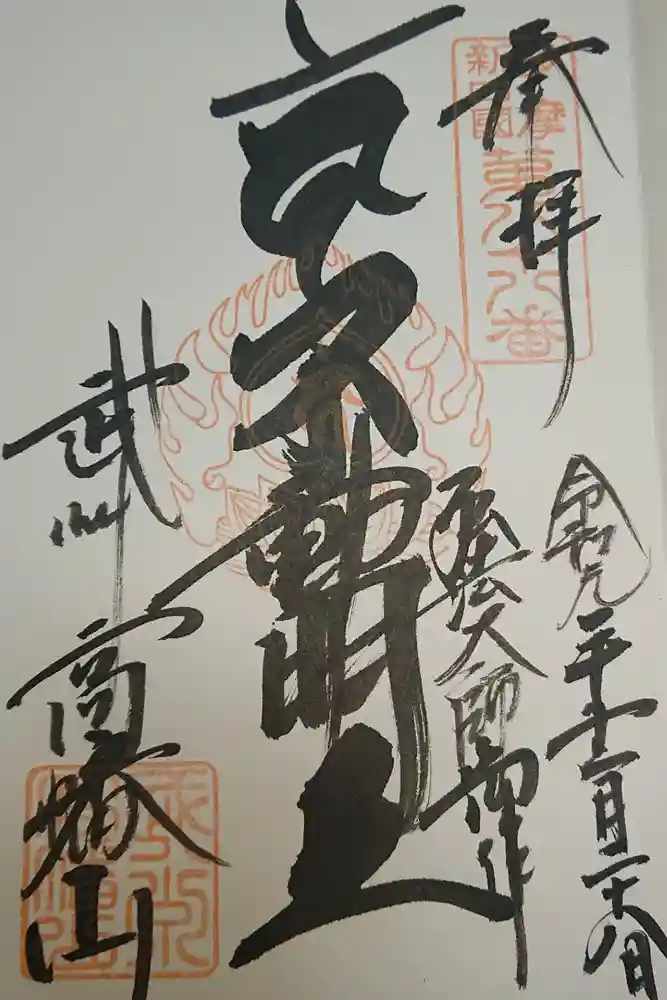 奉拝
多摩
新四国
第八十八番
令和元年十一月二十八日
弘法大師御作
不動明王
武州 高幡山